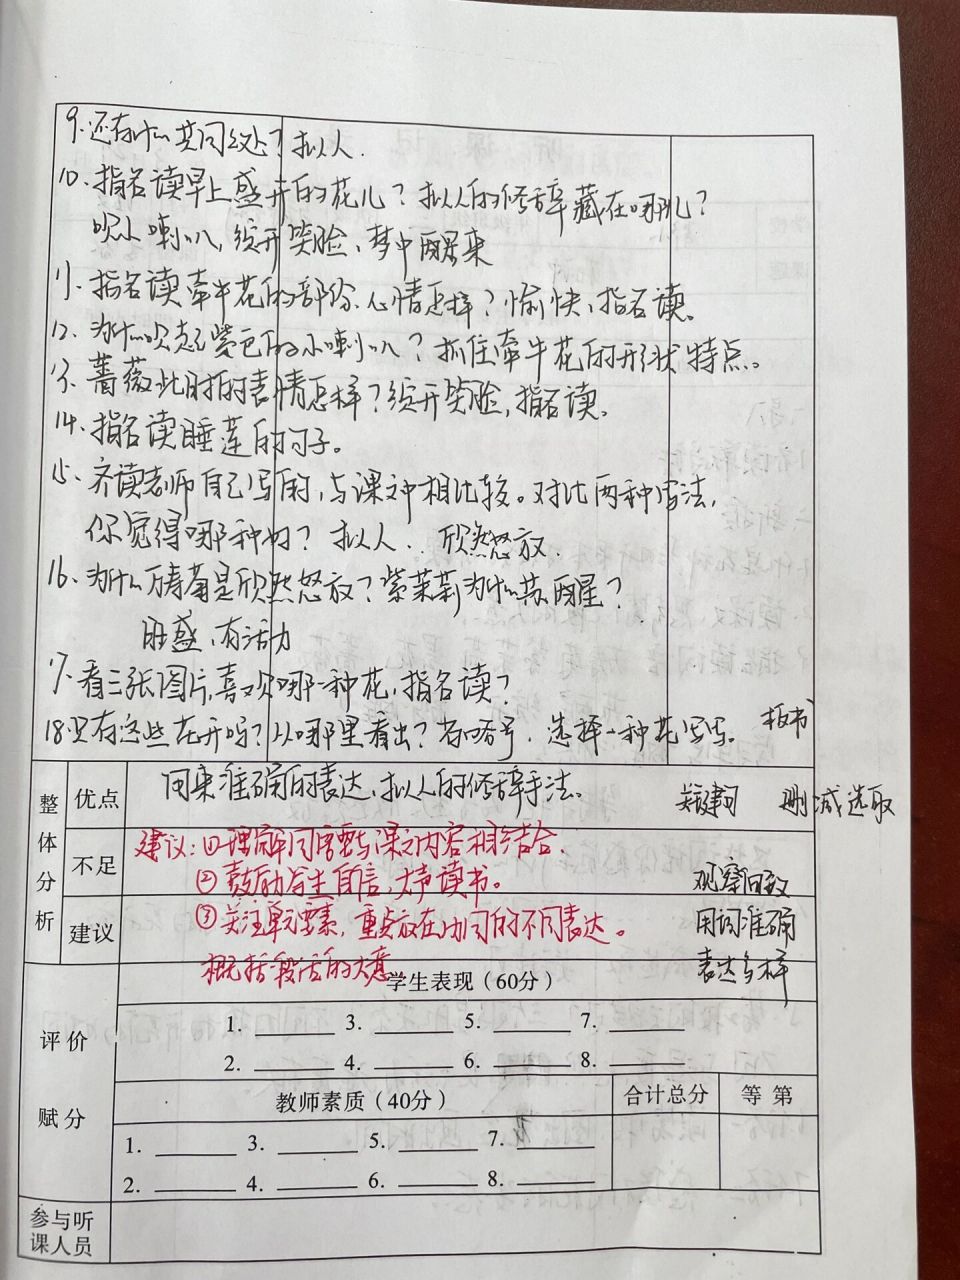 9. 还有什么共同之处？拟人.
10. 指名读早上盛开的花儿？拟人的修辞藏在哪儿？
吹小喇叭，绽开笑脸、梦中醒来
11. 指名读牵牛花的部份.心情怎样？愉快，指名读。
12. 为什么吹起紫色的小喇叭？抓住牵牛花的形状特点。
13. 蔷薇此时的表情怎样？绽开笑脸，指名读。
14. 指名读睡莲的句子。
15. 齐读老师自己写的，与课文中相比较。对比两种写法，
你觉得哪种好？拟人.. 欣然怒放.
16. 为什么万寿菊是欣然怒放？紫茉莉为什么苏醒？
旺盛、有活力
17. 看三张图片，喜欢哪一种花，指名读？
18. 只有这些花开吗？从哪里看出？省略号. 选择一种花写写。 板书
整体分析
优点 用来准确的表达、拟人的修辞手法。 关键词 删减选取
不足 建议：① 理解词语要与课文内容相结合.
② 鼓励学生自信，大声读书。 观察细致
建议 ③ 关注单元要素，重点放在动词的不同表达。 用词准确
概括段落的大意. 表达多样
学生表现（60分）
评价
赋分
1. 3. 5. 7.
2. 4. 6. 8.
教师素质（40分） 合计总分 等 第
1. 3. 5. 7.
2. 4. 6. 8.
参与听
课人员